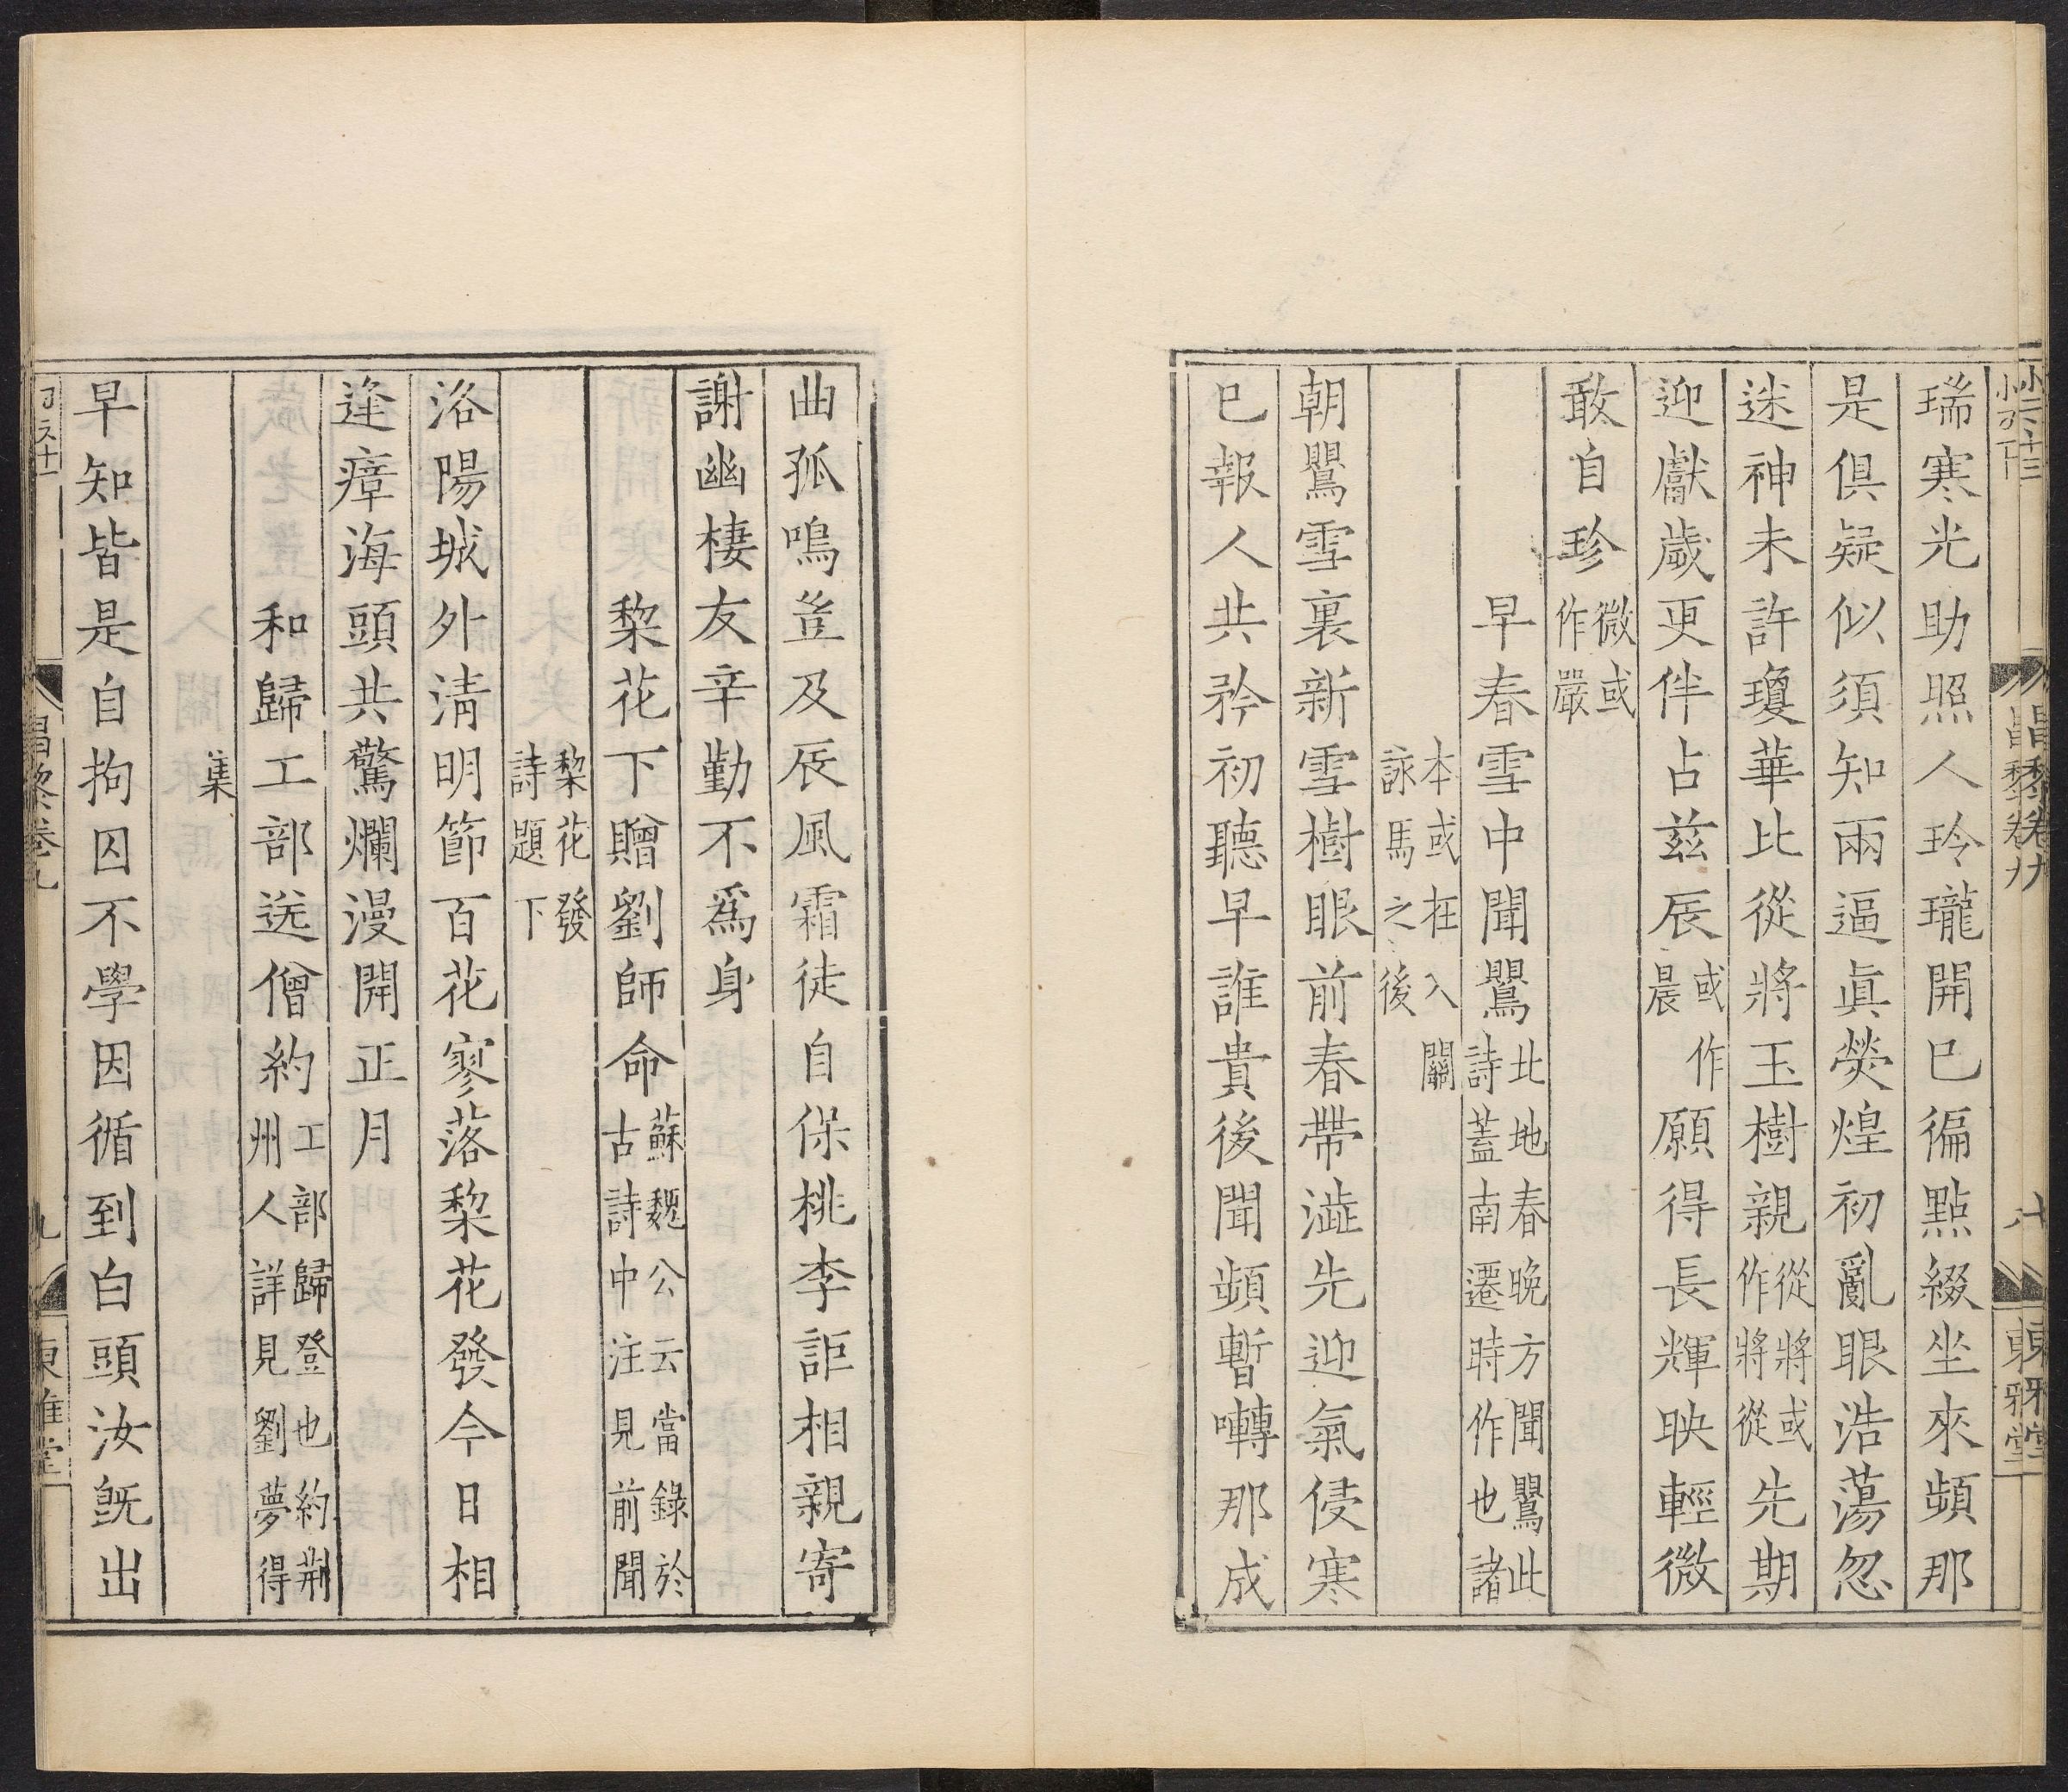 瑞寒光助照人玲瓏開已徧點綴坐來頻那
是俱疑似須知兩逼眞熒煌初亂眼浩蕩忽
迷神未許瓊華比從將玉樹親從將將或作將從先期
迎獻歲更伴占茲辰或作晨願得長輝映輕微
敢自珍微或作嚴
早春雪中聞鸎北地春晚方聞鸎此詩蓋南遷時作也諸
本或在入關詠馬之後
朝鸎雪裏新雪樹眼前春帶澁先迎氣侵寒
已報人共矜初聽早誰貴後聞頻暫囀那成
曲孤鳴豈及辰風霜徒自保桃李詎相親寄
謝幽棲友辛勤不爲身
棃花下贈劉師命蘇魏公云當錄於古詩中注見前聞
棃花發詩題下
洛陽城外淸明節百花寥落棃花發今日相
逢瘴海頭共驚爛漫開正月
和歸工部送僧約工部歸登也約荆州人詳見劉夢得
集
早知皆是自拘囚不學因循到白頭汝旣出
昌黎卷九
九
東雅堂